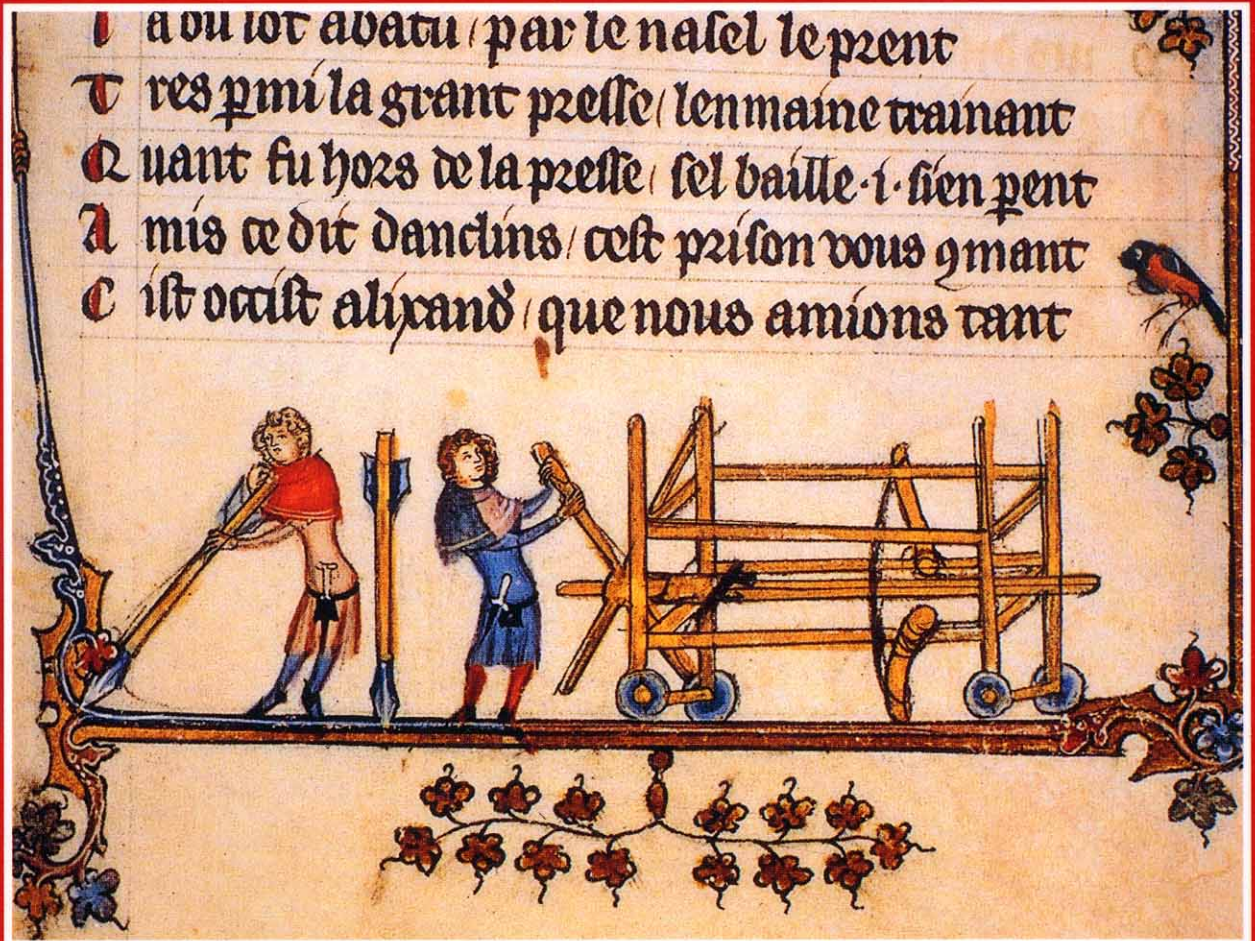 a du lot abatu / par le nasel le prent
Tres pmi la grant presse / lenmaine trainant
Quant fu hors de la presse / sel baille ·i· sien pent
Amis ce dit danclins / cest prison vous ꝯmant
Cist occist alixand / que nous amions tant